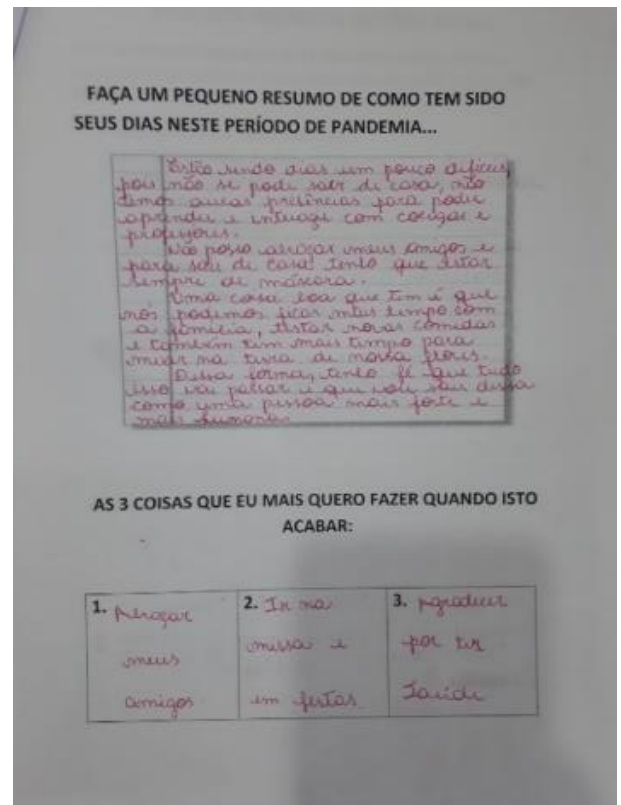 FAÇA UM PEQUENO RESUMO DE COMO TEM SIDO
SEUS DIAS NESTE PERÍODO DE PANDEMIA...
Estão sendo dias um pouco difíceis,
pois não se pode sair de casa, não
temos aulas presenciais para poder
aprender e interagir com colegas e
professores.
Não posso abraçar meus amigos e
para sair de casa tenho que estar
sempre de máscara.
Uma coisa boa que tem é que
nós podemos ficar mais tempo com
a família, testar novas comidas
e também tem mais tempo para
mexer na terra de nossa flores.
Dessa forma, tenho fé que tudo
isso vai passar e que vou sair dessa
como uma pessoa mais forte e
mais humana.
AS 3 COISAS QUE EU MAIS QUERO FAZER QUANDO ISTO
ACABAR:
1. Abraçar
meus
amigos
2. Ir na
missa e
em festas
3. Agradecer
por ter
Saúde